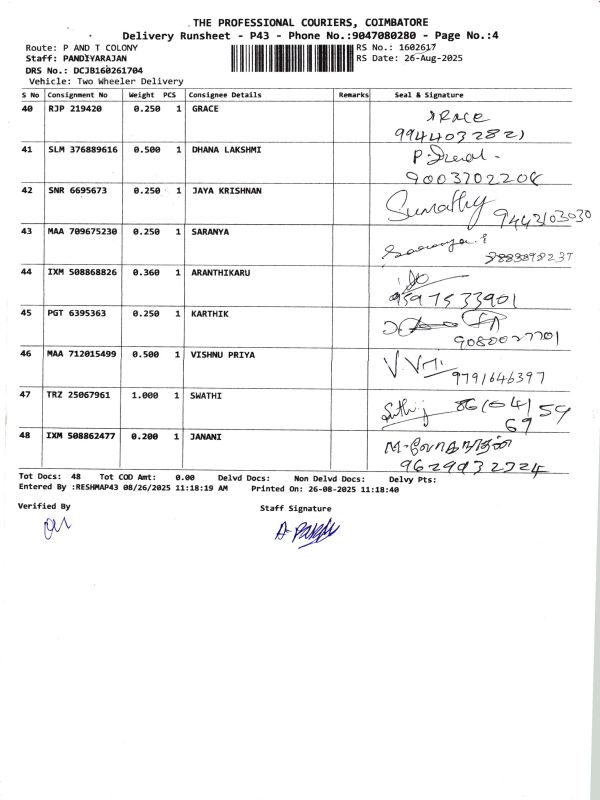 THE PROFESSIONAL COURIERS, COIMBATORE
Delivery Runsheet - P43 - Phone No.:9047080280 - Page No.:4
Route: P AND T COLONY RS No.: 1602617
Staff: PANDIYARAJAN RS Date: 26-Aug-2025
DRS No.: DCJB160261704
Vehicle: Two Wheeler Delivery
S No Consignment No Weight PCS Consignee Details Remarks Seal & Signature
40 RJP 219420 0.250 1 GRACE GRACE
9944032821
41 SLM 376889616 0.500 1 DHANA LAKSHMI
9003702208
42 SNR 6695673 0.250 1 JAYA KRISHNAN Sumathy
9443103030
43 MAA 709675230 0.250 1 SARANYA
44 IXM 508868826 0.360 1 ARANTHIKARU
9597533901
45 PGT 6395363 0.250 1 KARTHIK
9080027701
46 MAA 712015499 0.500 1 VISHNU PRIYA
9791646397
47 TRZ 25067961 1.000 1 SWATHI
69
48 IXM 508862477 0.200 1 JANANI
Tot Docs: 48 Tot COD Amt: 0.00 Delvd Docs: Non Delvd Docs: Delvy Pts:
Entered By :RESHMAP43 08/26/2025 11:18:19 AM Printed On: 26-08-2025 11:18:40
Verified By Staff Signature